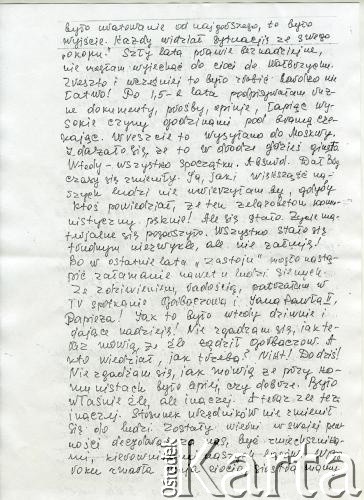 było uratowanie od najgorszego, to było
wyjście. Każdy widział sytuację ze swego
"okopu". Szły lata prawie beznadziejne,
nie mogłam wyjechać do cioci do Wałbrzycha.
Zresztą i wcześniej to było zrobić bardzo nie
łatwo! Po 1,5-2 lata podpisywałam różne
dokumenty, prośby, opinie,
godzinami pod
Wreszcie to wysyłano do Moskwy.
I zdarzało się, że to w drodze gdzieś ginęło
Wtedy - wszystko spoczątku. Absurd. Dał Bóg
czasy się zmieniły. Ja, jak i większość na-
szych ludzi nie uwierzyłam by, gdyby
ktoś powiedział, że ten żelazobeton komu-
nistyczny pęknie! Ale się stało. Życie ma-
terjalne się pogorszyło. Wszystko stało się
trudnym niezwykle, ale nie żałuję!
Bo w ostatnie lata "zastoju" mogło nastą-
pić załamanie nawet u ludzi silnych.
Ze zdziwieniem, radością, patrzałam w
TV spotkanie Gorbaczowa i Jana Pawła II,
Papieża! Jak to było wtedy dziwnie i
dające nadzieję! Nie zgadzam się, jak te-
raz mówią, że źle rządził Gorbaczow. A
kto wiedział, jak trzeba? Nikt! Do dziś!
Nie zgadzam się, jak mówią że przy ko-
munistach było lepiej czy dobrze. Było
właśnie źle, ale inaczej. A teraz źle też
inaczej. Stosunek urzędników nie zmienił
się do ludzi. Zostały wierni w swojej pew-
ności
kierowni
roku zmarła ciocia, siostra mamy
ośrodek
Karta